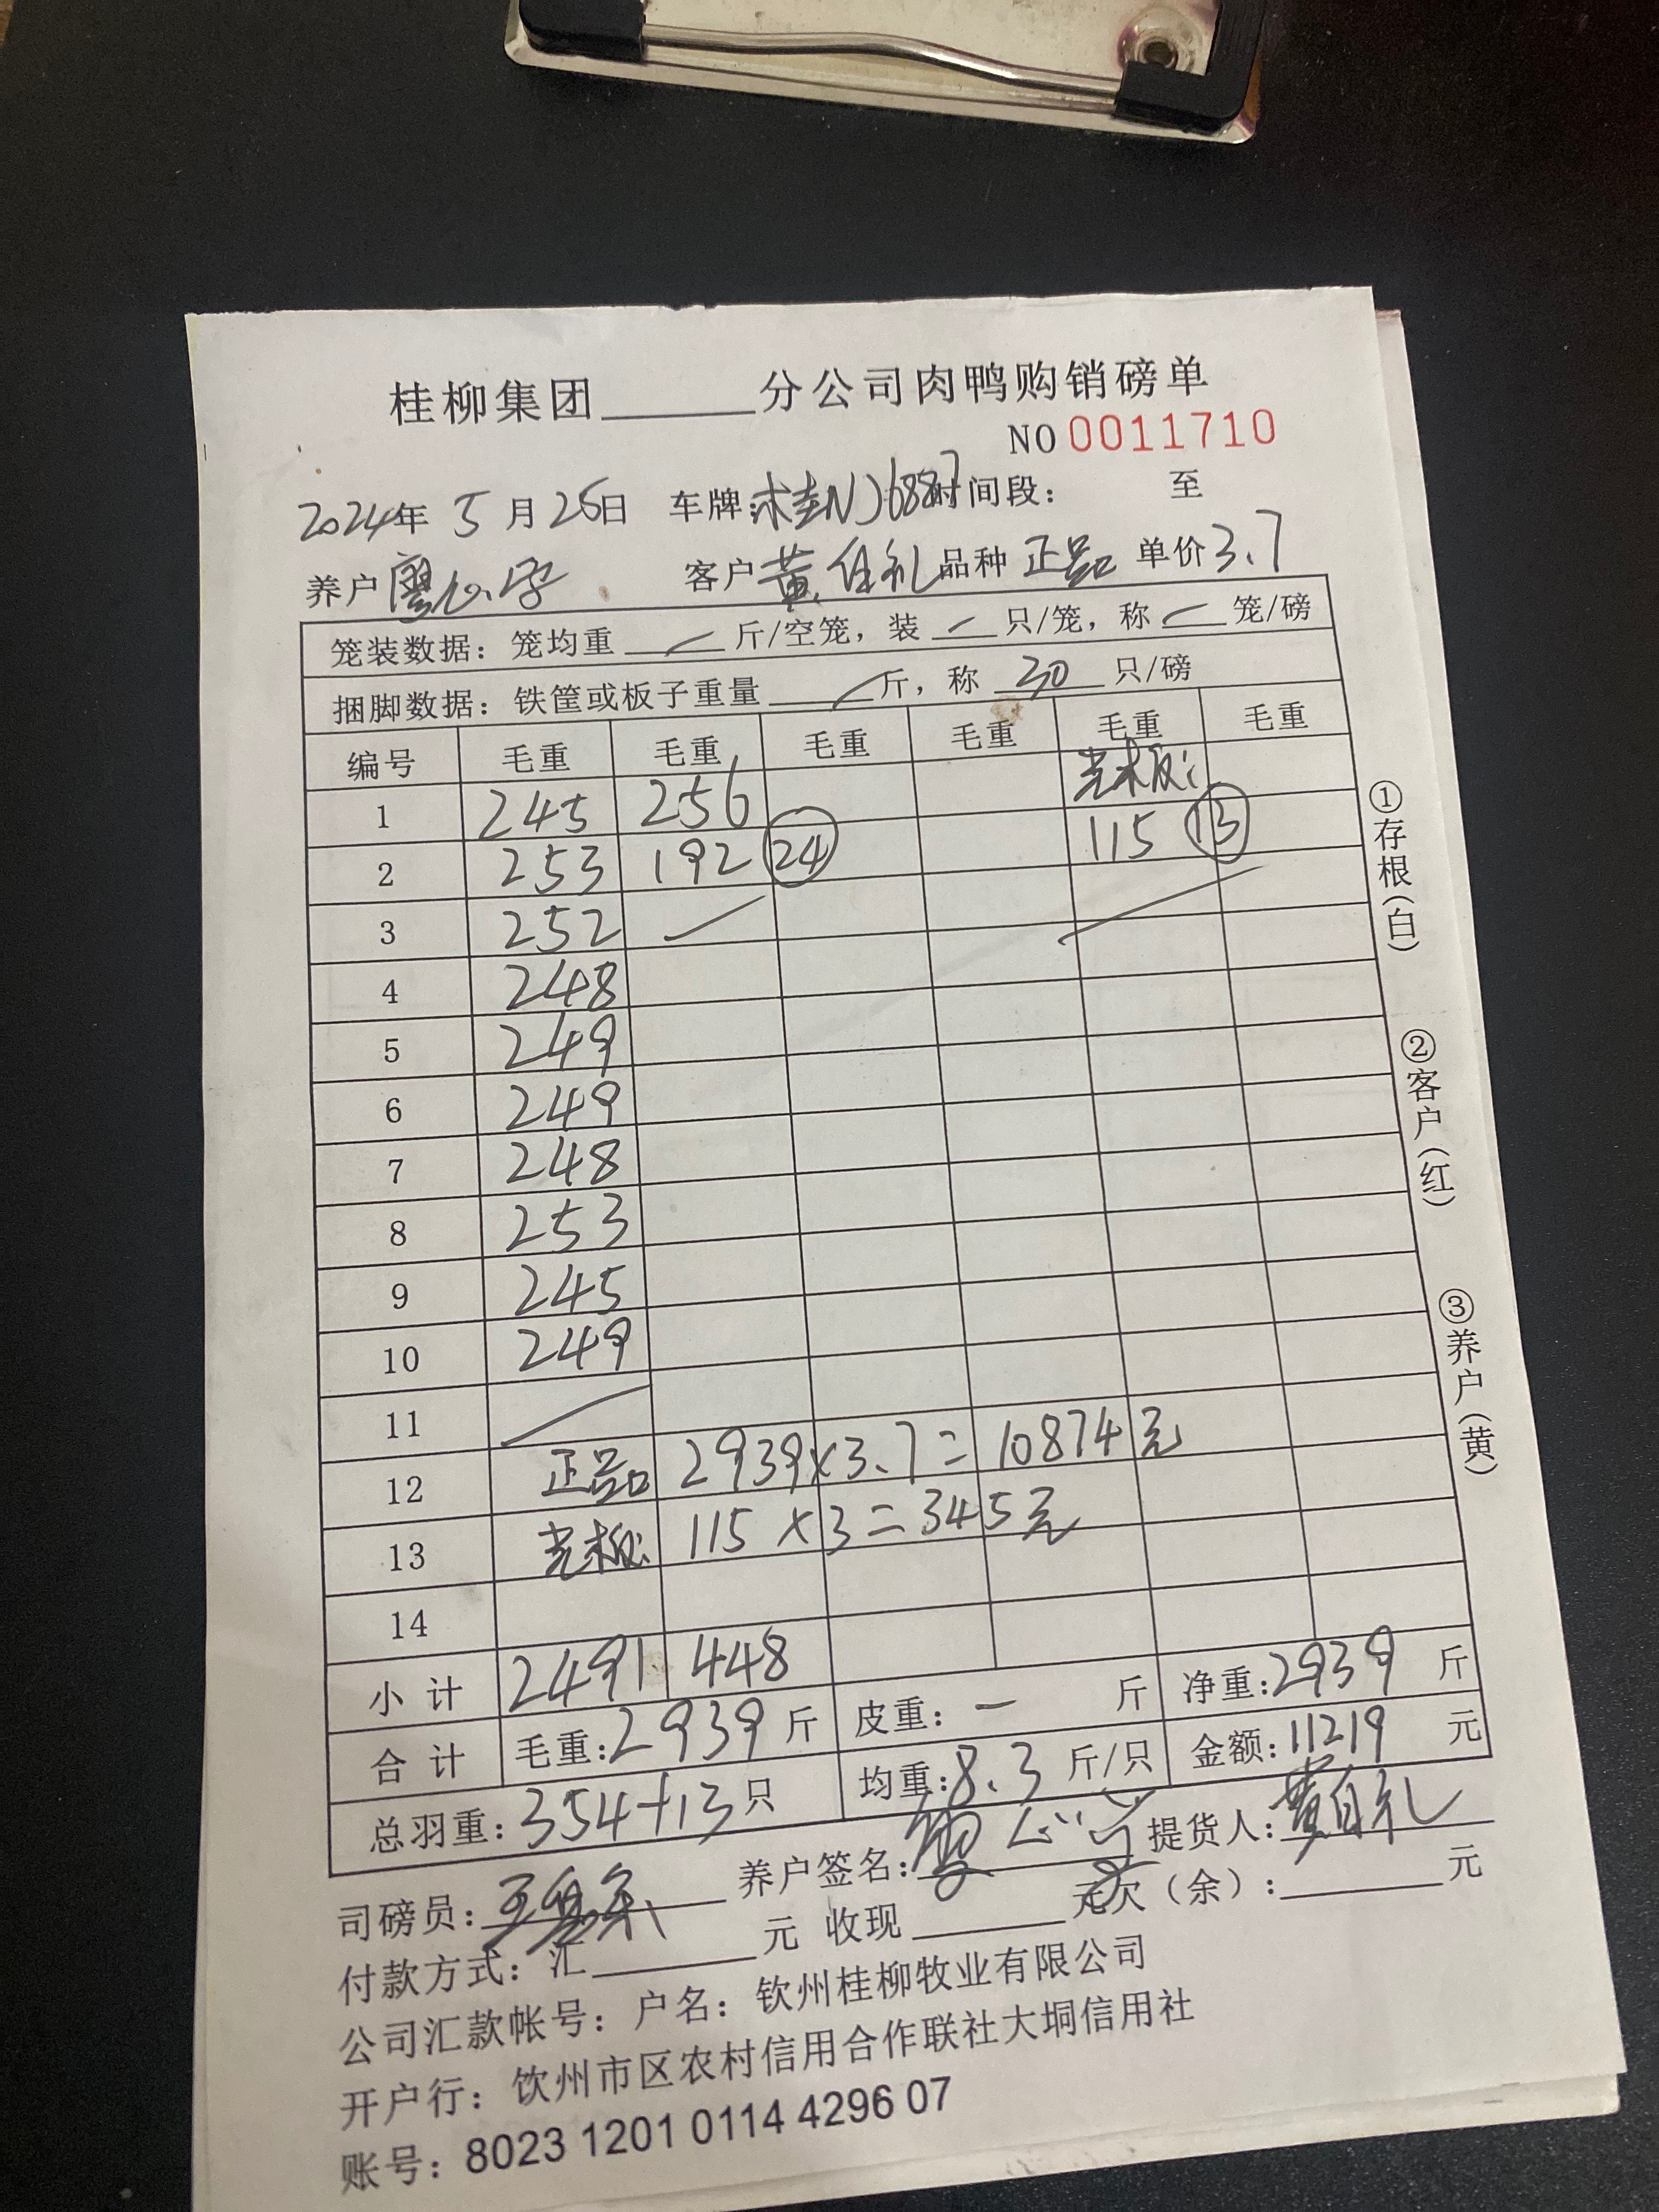 桂柳集团______分公司肉鸭购销磅单
NO 0011710
2024年 5月26日 车牌: N J6887 时间段: 至
养户 廖 客户 黄自礼 品种 正品 单价 3.7
笼装数据: 笼均重 — 斤/空笼, 装 — 只/笼, 称 — 笼/磅
捆脚数据: 铁筐或板子重量 — 斤, 称 30 只/磅
编号 毛重 毛重 毛重 毛重 毛重 毛重
1 245 256 光板:
2 253 192 24 115 13
3 252
4 248
5 249
6 249
7 248
8 253
9 245
10 249
11
12 正品 2939×3.7=10874元
13 光板 115×3=345元
14
小计 2491 448
合计 毛重:2939斤 皮重: — 斤 净重:2939斤
总羽重:354+13只 均重:8.3斤/只 金额:11219元
司磅员: 养户签名: 提货人:黄自礼
付款方式: 汇______元 收现______元 欠(余):______元
公司汇款帐号: 户名: 钦州桂柳牧业有限公司
开户行: 钦州市区农村信用合作联社大垌信用社
账号: 8023 1201 0114 4296 07
①存根(白)
②客户(红)
③养户(黄)